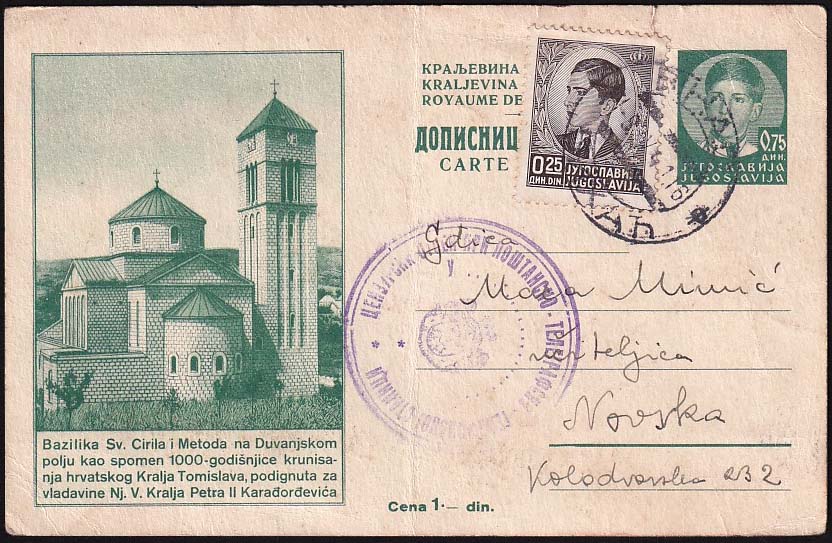 КРАЉЕВИНА
KRALJEVINA
ROYAUME DE
ДОПИСНИЦ
CARTE
0.25
ДИН. DIN.
ЈУГОСЛАВИЈА
JUGOSLAVIJA
0.75
ДИН.
ЈУГОСЛАВИЈА
JUGOSLAVIJA
Gdica
Mara Mimić
učiteljica
Novska
Kolodvorska 232
У
ПОШТАНСКО - ТЕЛЕГРАФСКА
Bazilika Sv. Cirila i Metoda na Duvanjskom
polju kao spomen 1000-godišnjice krunisa-
nja hrvatskog Kralja Tomislava, podignuta za
vladavine Nj. V. Kralja Petra II Karađorđevića
Cena 1·— din.